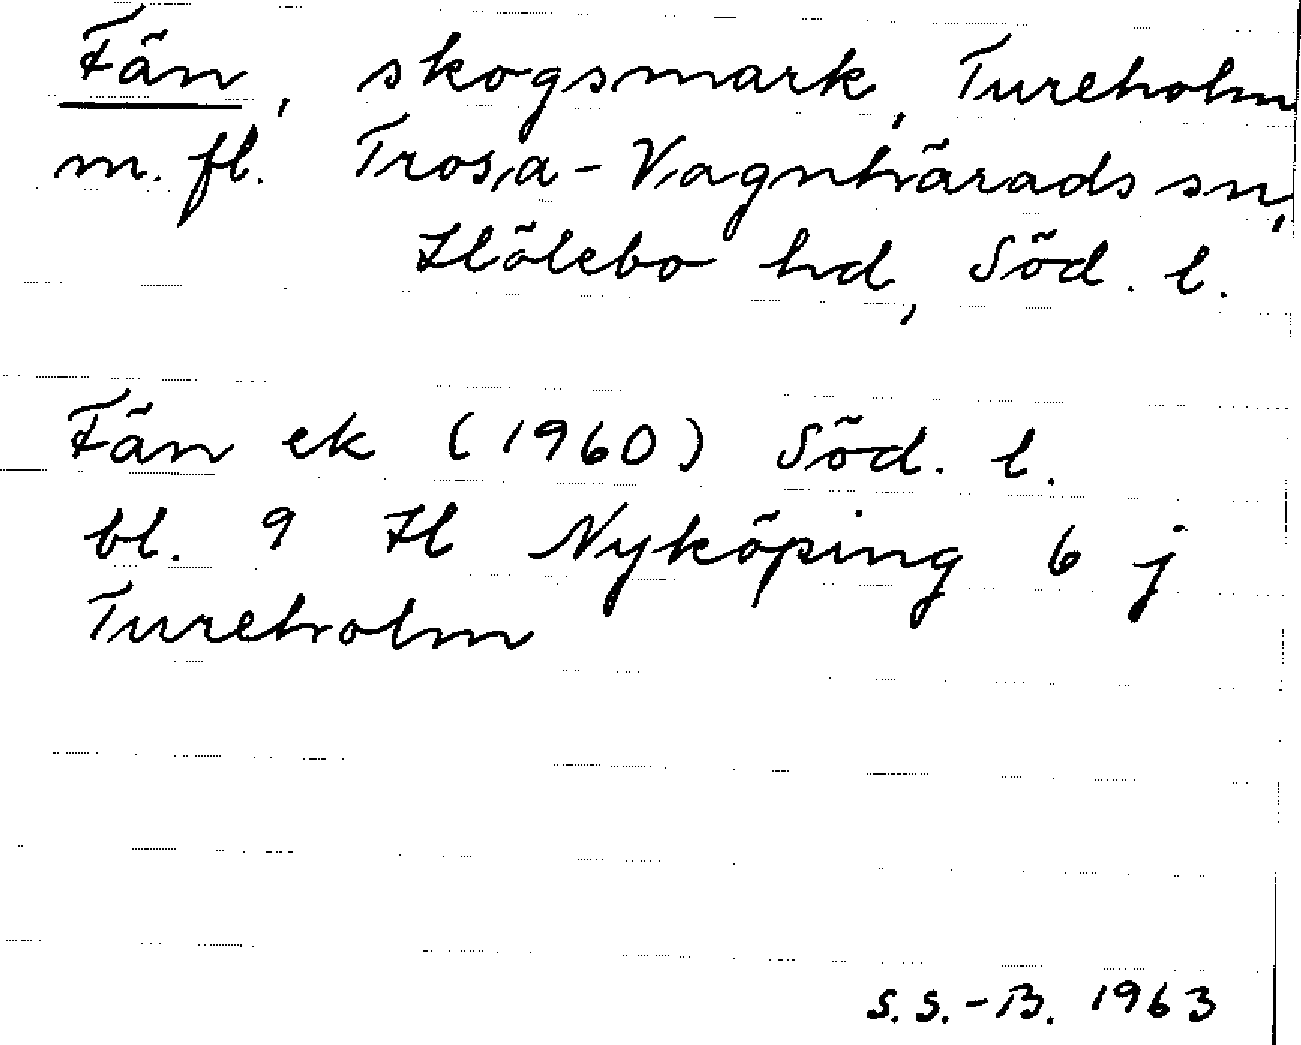 Fän, skogsmark, Tureholm
m. fl. Trosa-Vagnhärads sn,
Hölebo hd, Söd. l.
Fän ek (1960) Söd. l.
bl. 9 H Nyköping 6 j
Tureholm
S. S.-B. 1963